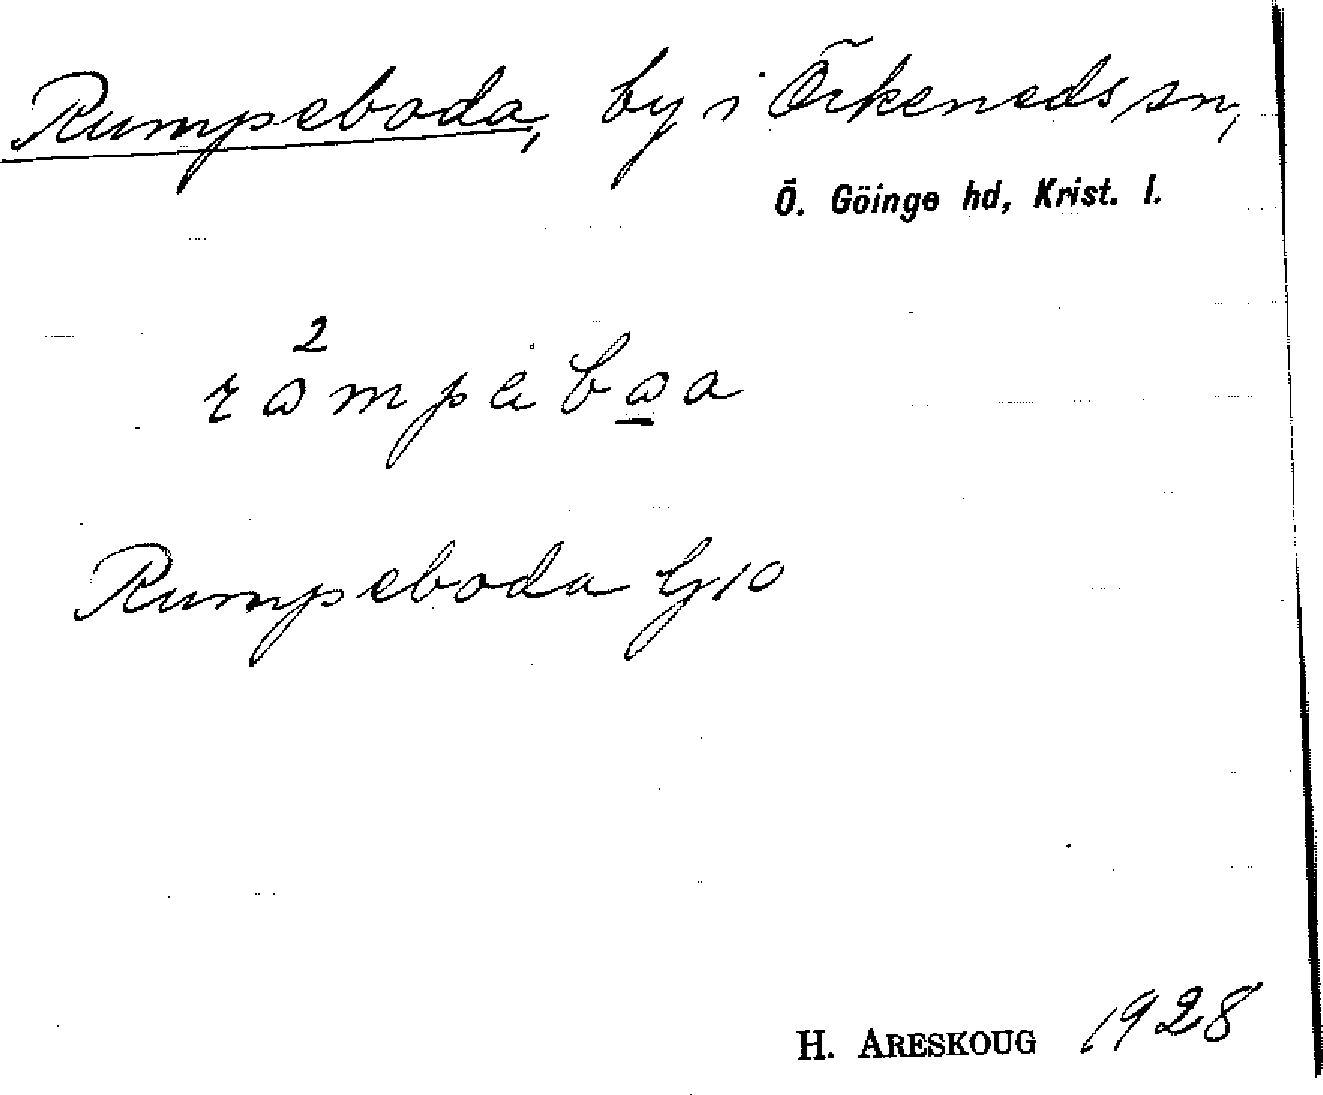 Rumpeboda, by i Örkeneds sn,
Ö. Göinge hd, Krist. l.
2
rɷmpebɷa
Rumpeboda G10
H. ARESKOUG 1928